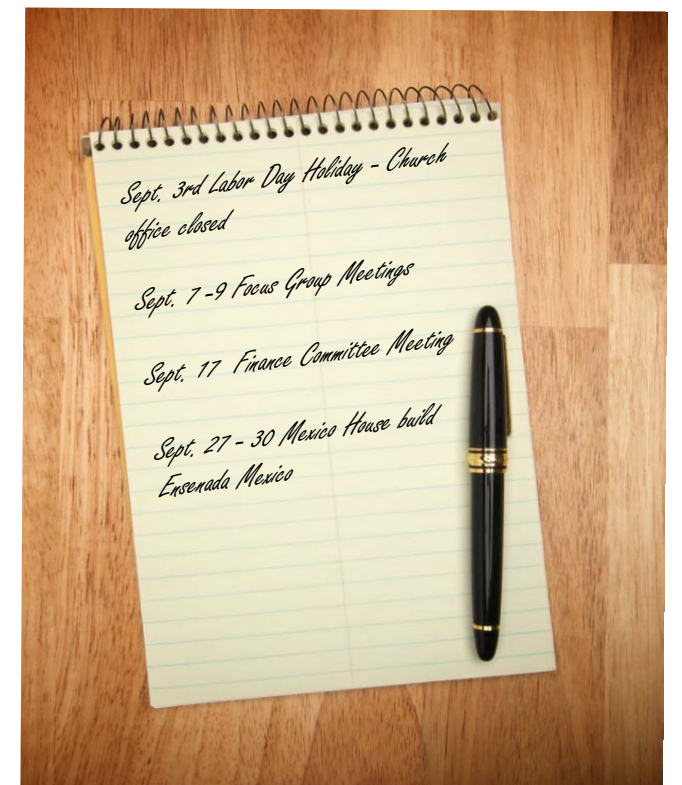 Sept. 3rd Labor Day Holiday - Church
office closed
Sept. 7 -9 Focus Group Meetings
Sept. 17 Finance Committee Meeting
Sept. 27 - 30 Mexico House build
Ensenada Mexico